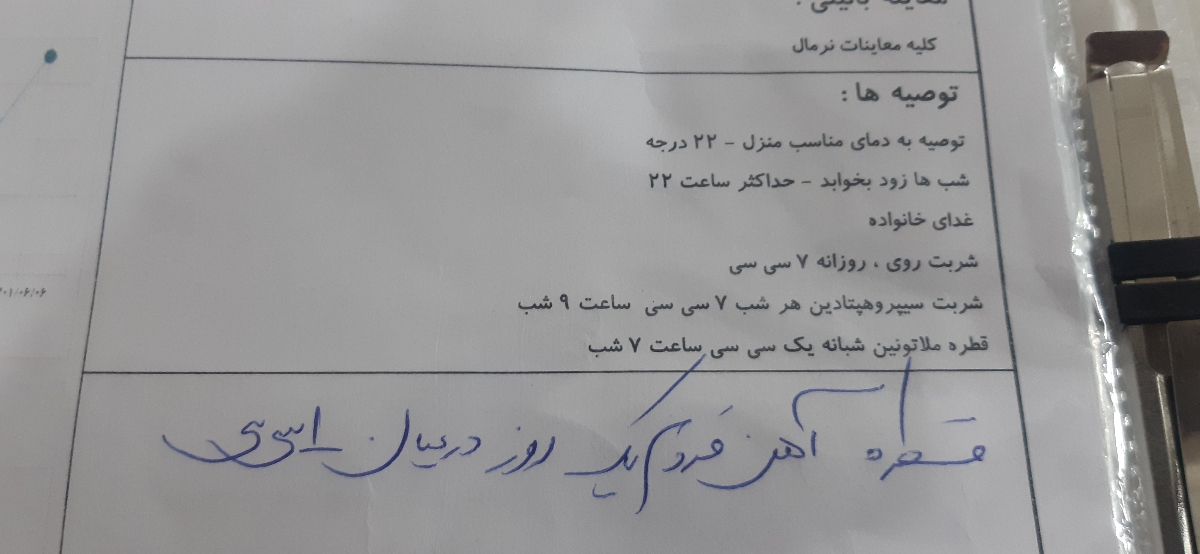 معاینه بالینی :
کلیه معاینات نرمال
توصیه ها :
توصیه به دمای مناسب منزل - ۲۲ درجه
شب ها زود بخوابد - حداکثر ساعت ۲۲
غدای خانواده
شربت روی ، روزانه ۷ سی سی
شربت سیپروهپتادین هر شب ۷ سی سی ساعت ۹ شب
قطره ملاتونین شبانه یک سی سی ساعت ۷ شب
قطره آهن فروم یک روز درمیان ۱ سی سی
۰۱/۰۶/۰۶